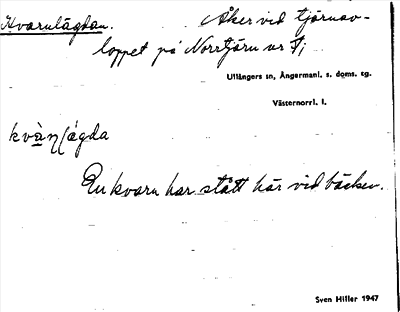 Kvarnlägdan. Åker vid tjärnav-
loppet på Norrtjärn nr 1;
Ullångers sn, Ångermanl. s. doms. tg.
Västernorrl. l.
kvàṇlägda
En kvarn har stått här vid bäcken.
Sven Hiller 1947